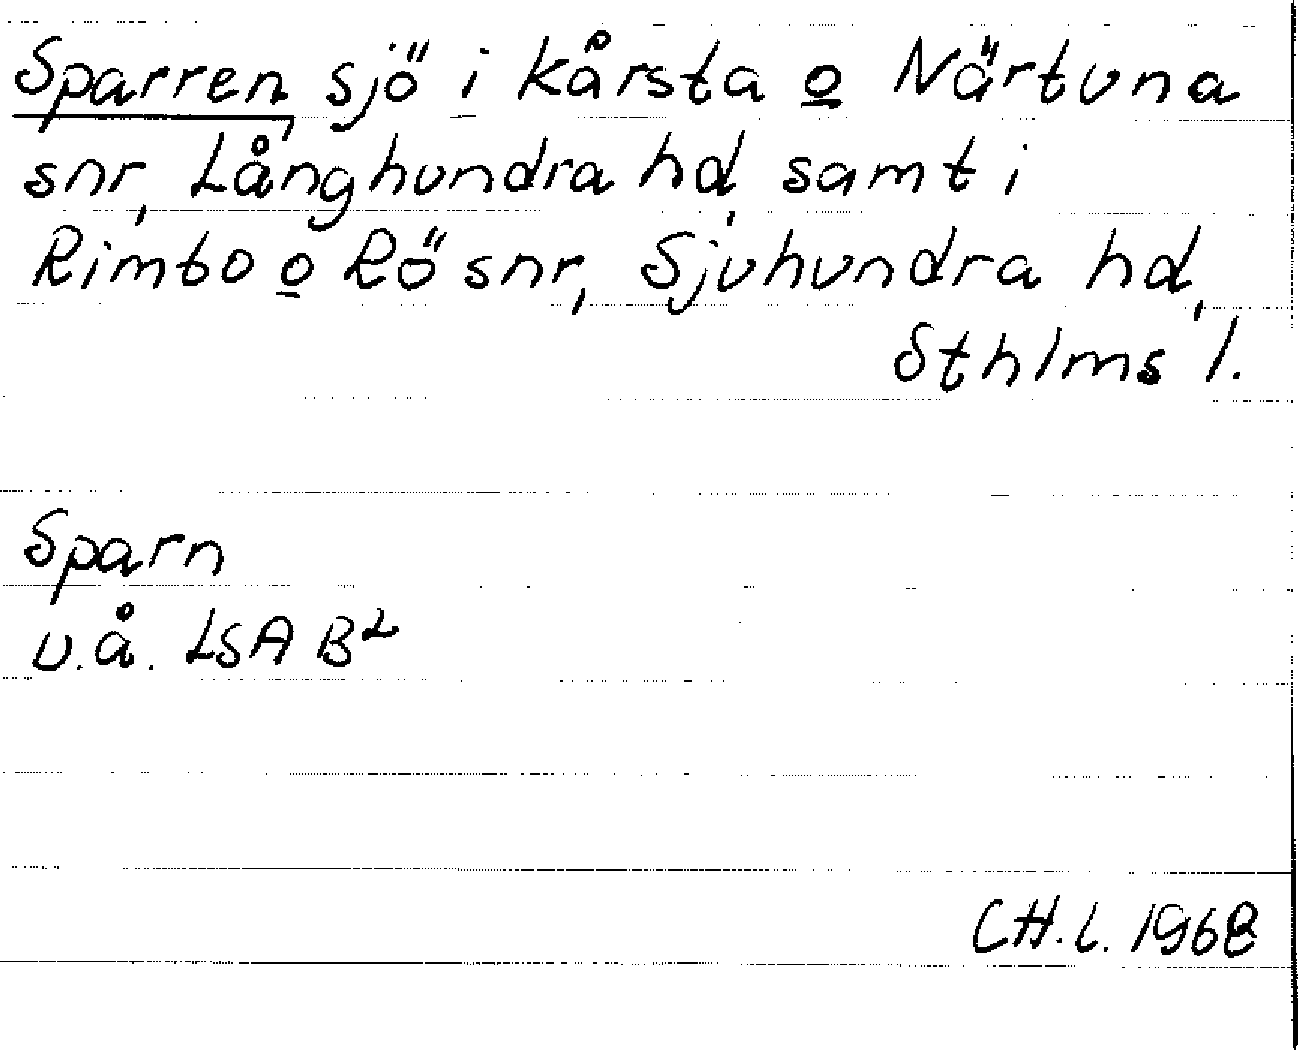 Sparren, sjö i Kårsta o Närtuna
snr, Långhundra hd, samt i
Rimbo o Rö snr, Sjuhundra hd,
Sthlms l.
Sparn
u.å. LSA B²
CH.L. 1968